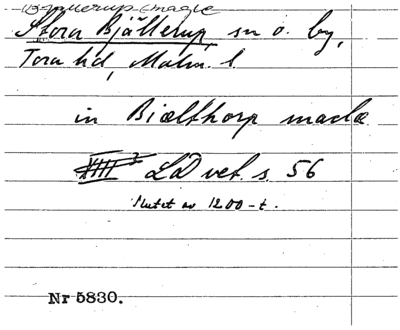 Bjällerup, magle
Stora Bjällerup, sn o. by,
Torna hd, Malm. l.
in Biælthorp maclæ
LD vet. s. 56
slutet av 1200-t.
Nr 5830.